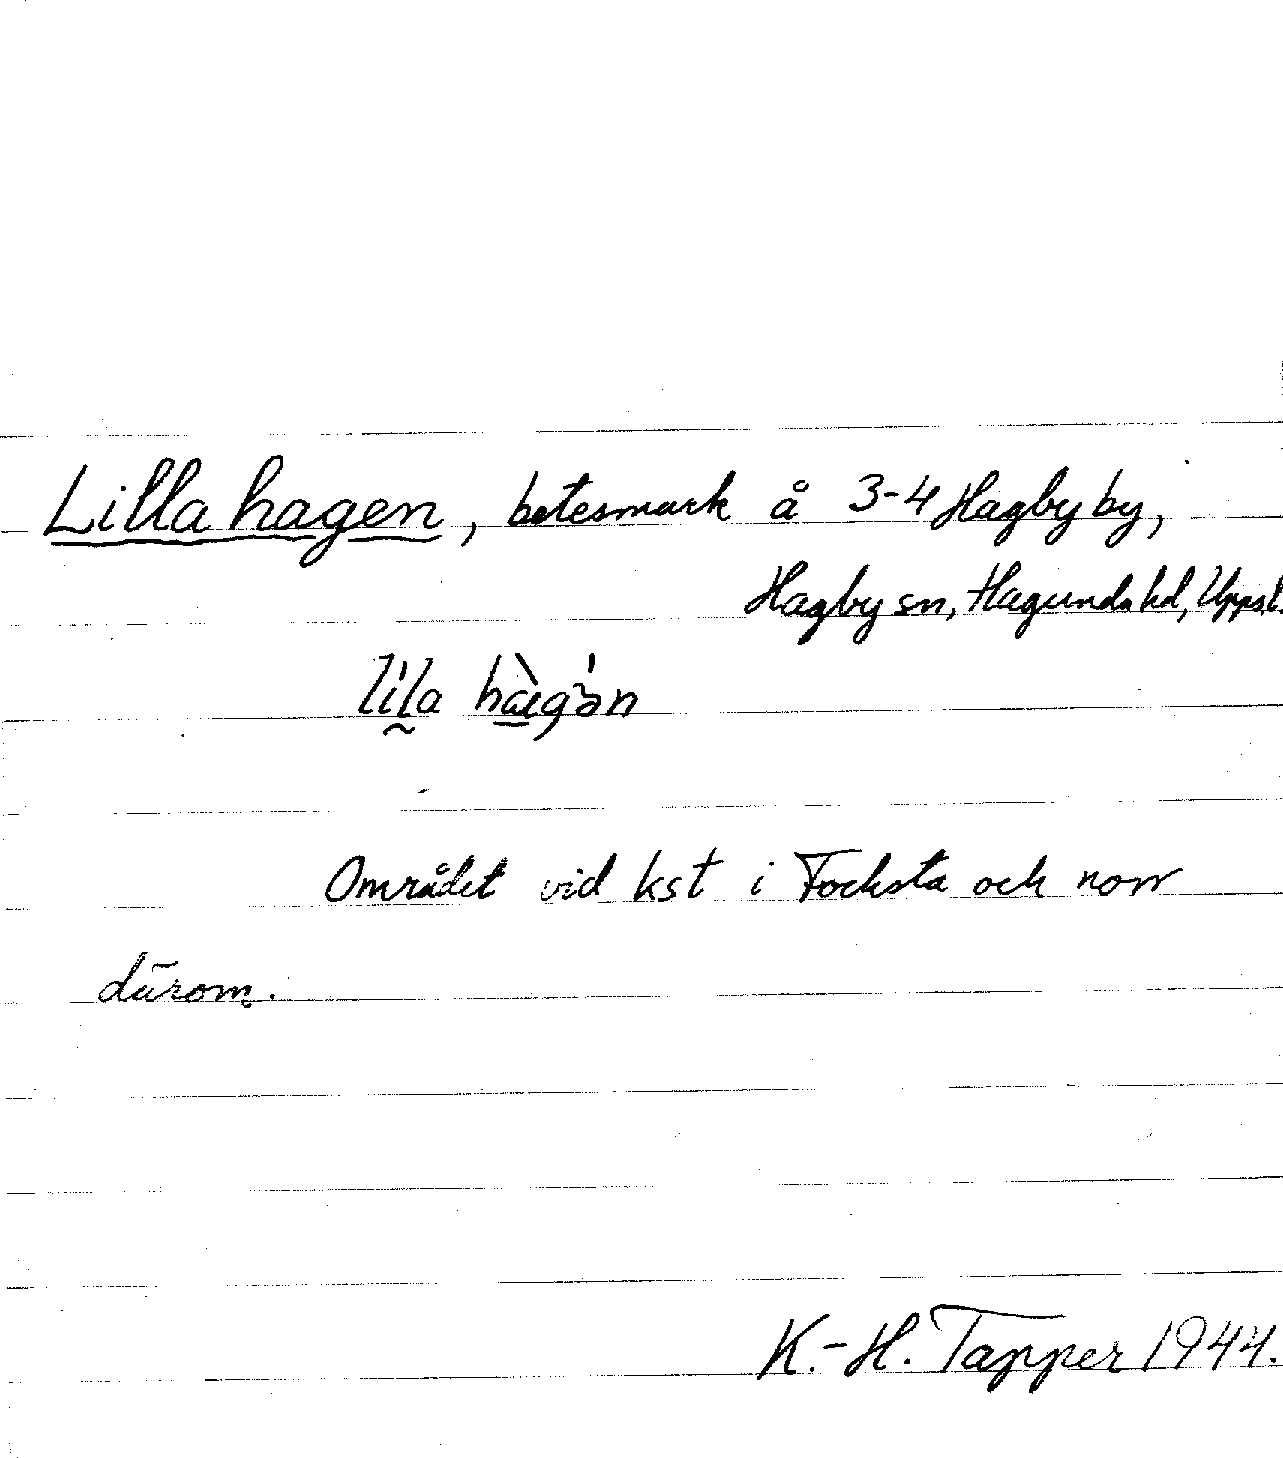 Lilla hagen, betesmark å 3-4 Hagby by,
Hagby sn, Hagunda hd, Uppsl.
Området vid kst i Focksta och norr
därom.
K.-H. Tapper 1944.